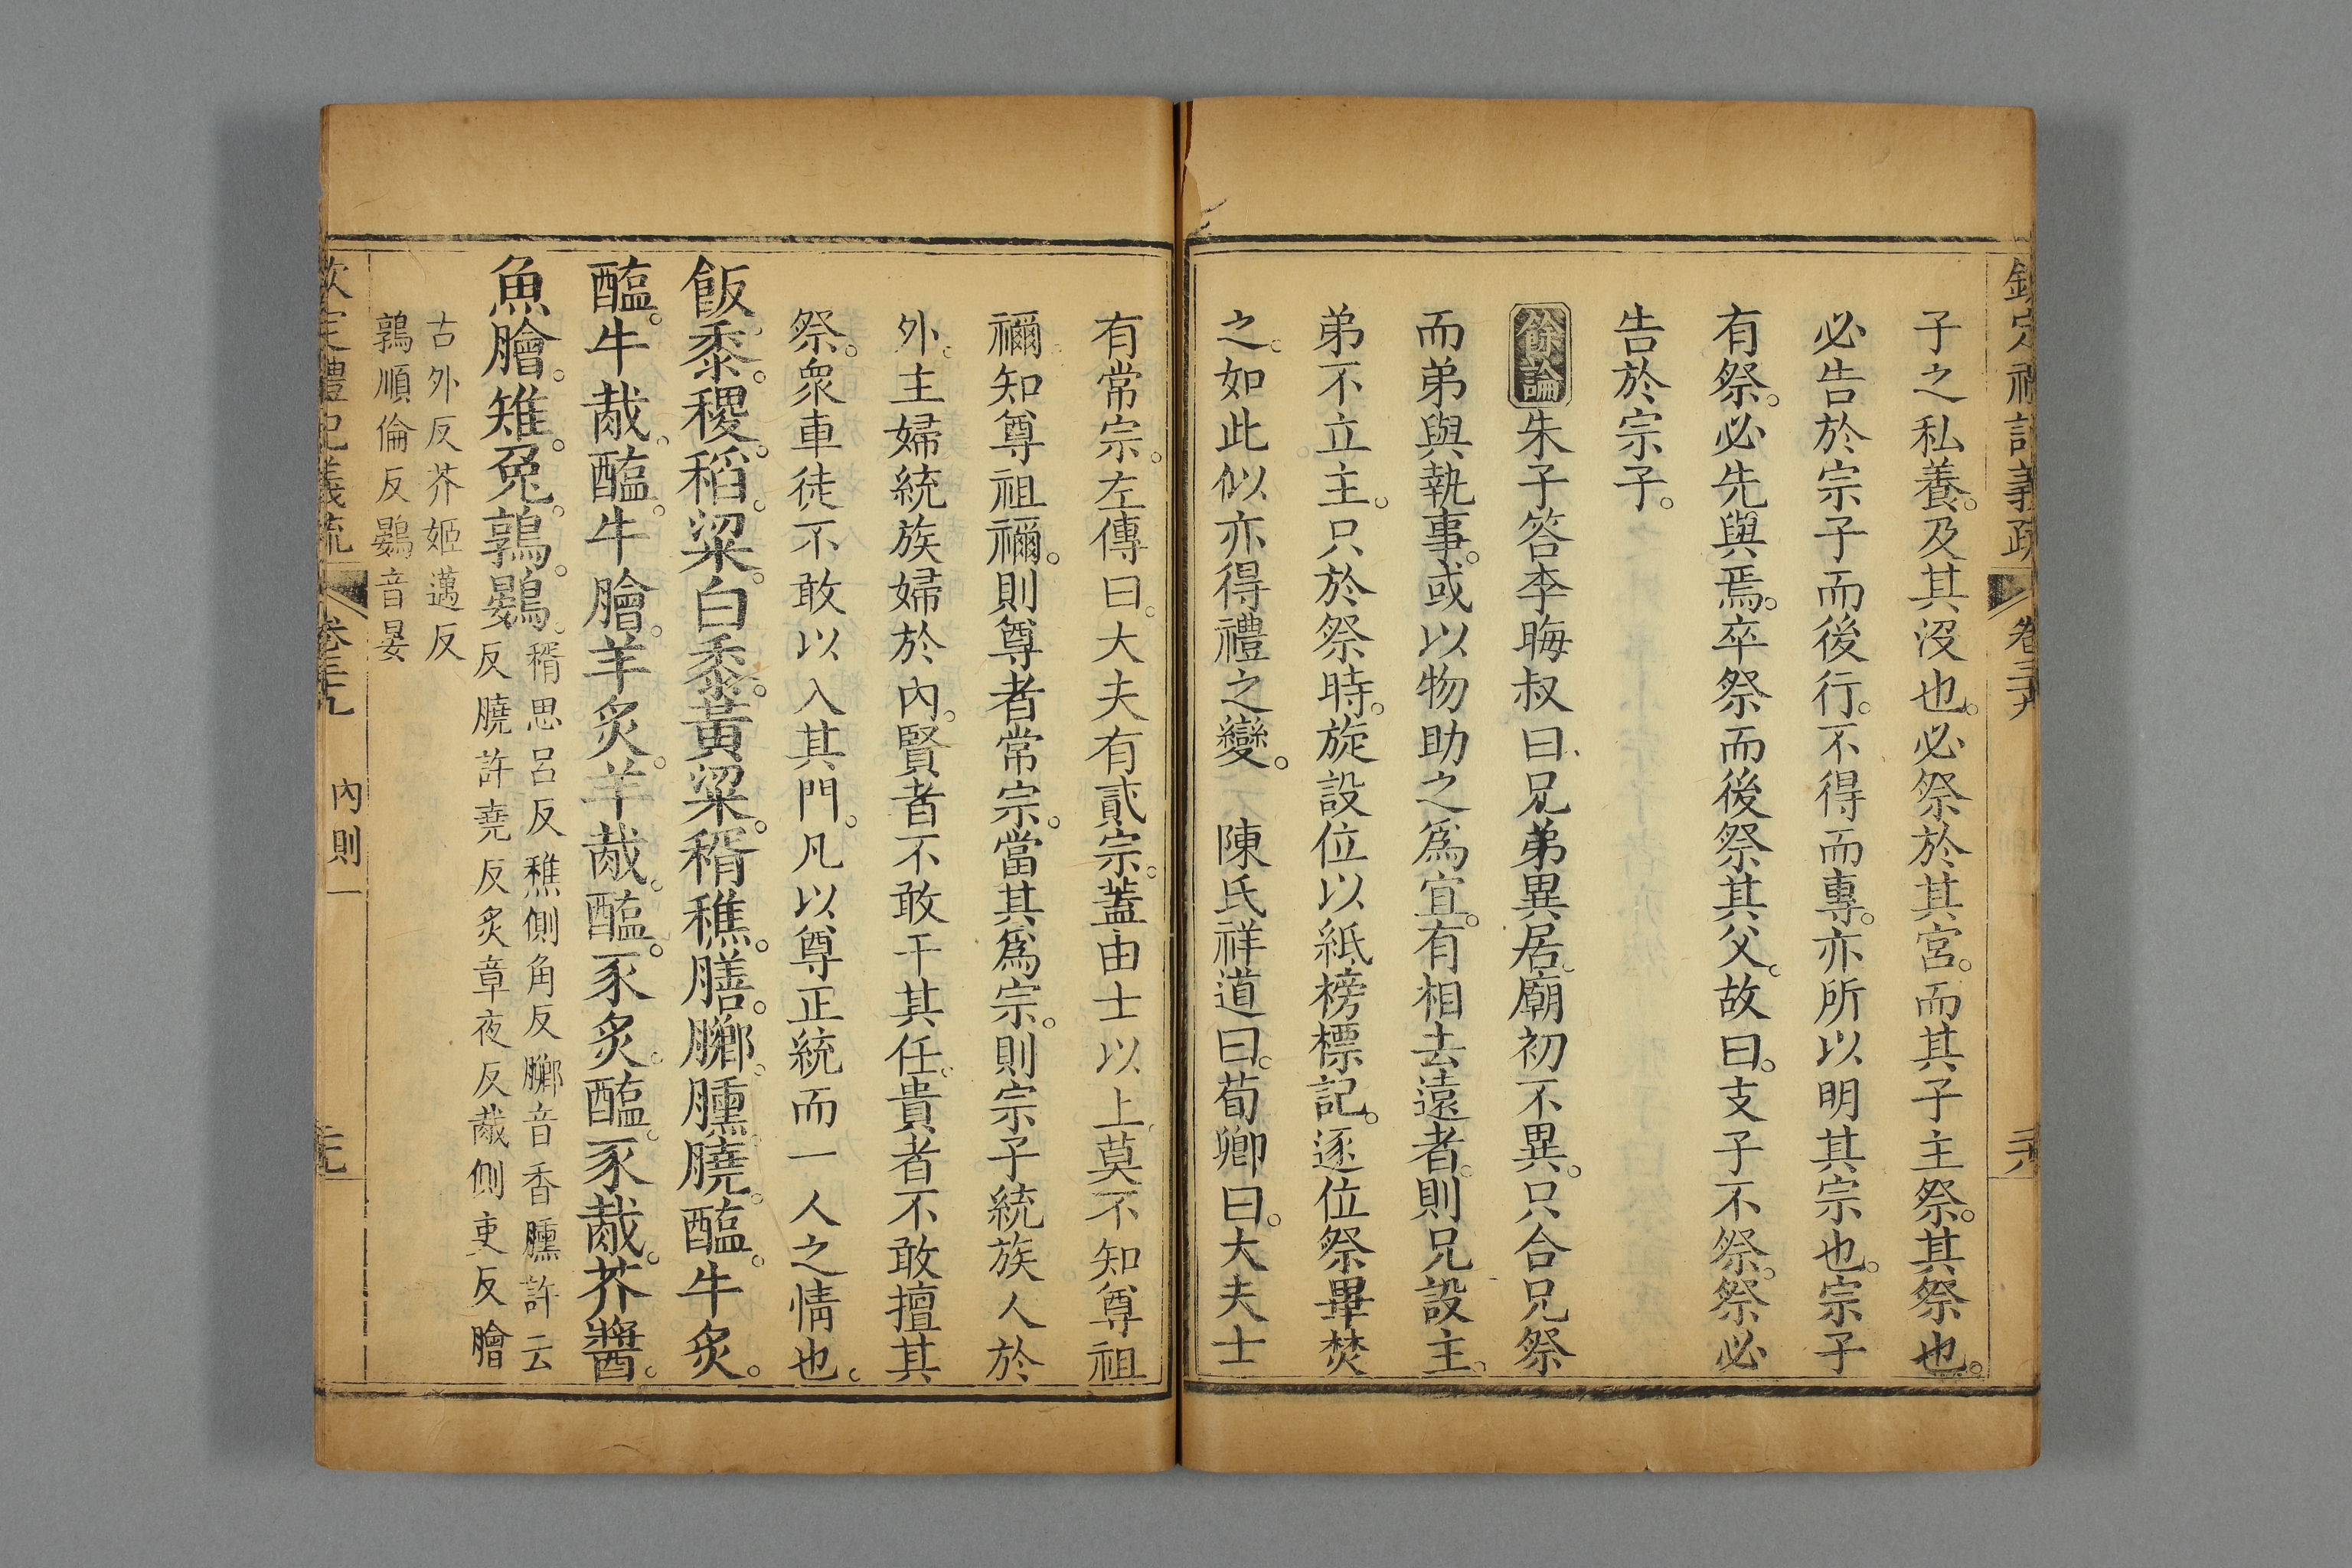 欽定禮記義疏 卷三十九 三十八
子之私養。及其沒也。必祭於其宮。而其子主祭。其祭也。
必告於宗子而後行。不得而專。亦所以明其宗也。宗子
有祭。必先與焉。卒祭而後祭其父。故曰。支子不祭。祭必
告於宗子。
餘論朱子答李晦叔曰、兄弟異居。廟初不異。只合兄祭
而弟與執事。或以物助之爲宜。有相去遠者。則兄設主。
弟不立主。只於祭時。旋設位以紙榜標記。逐位祭畢焚
之。如此似亦得禮之變。 陳氏祥道曰。荀卿曰。大夫士
有常宗。左傳曰。大夫有貳宗。蓋由士以上。莫不知尊祖
禰知尊祖禰。則尊者常宗。當其爲宗。則宗子統族人於
外。主婦統族婦於內。賢者不敢干其任。貴者不敢擅其
祭。衆車徒不敢以入其門。凡以尊正統而一人之情也。
飯。黍。稷。稻。粱。白黍。黃粱。稰穛。膳。膷。臐膮。醢。牛炙。
醢。牛胾。醢。牛膾。羊炙。羊胾。醢。豕炙。醢。豕胾。芥醬。
魚膾。雉。兔。鶉。鷃。稰思呂反穛側角反膷音香臐許云
反膮許堯反炙章夜反胾側吏反膾
古外反芥姬邁反
鶉順倫反鷃音晏
欽定禮記義疏 卷三十九 內則一 三十九